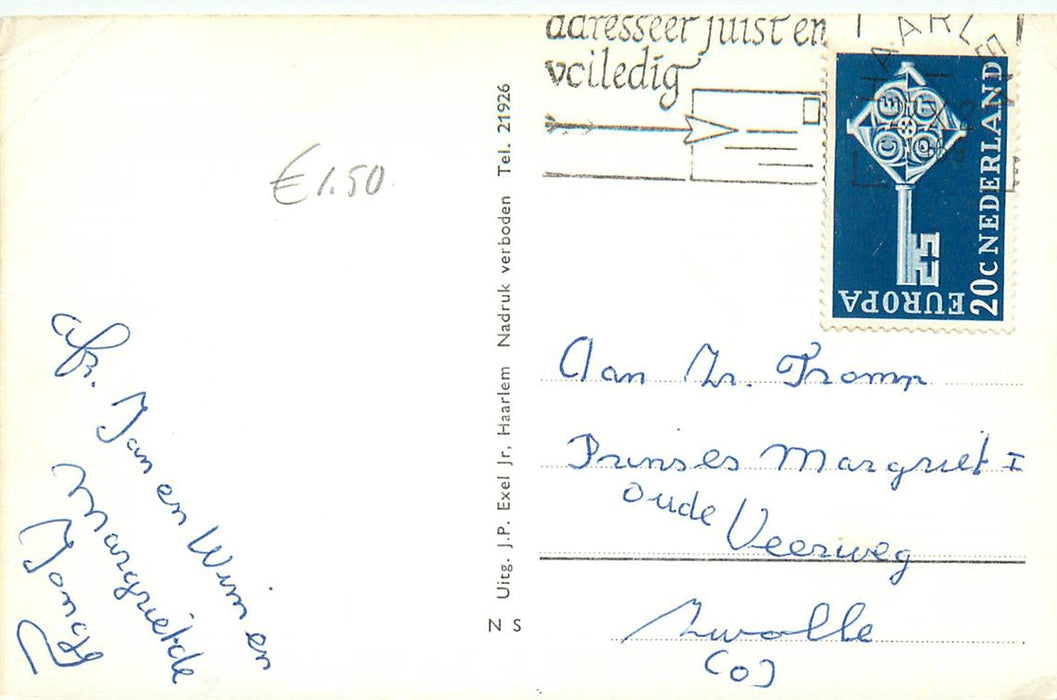 adresseer juist en
volledig
HAARLEM
NEDERLAND
20c
EUROPA
CEPT
€ 1.50
Uitg. J.P. Exel Jr, Haarlem Nadruk verboden Tel. 21926
N S
afz. Jan en Wim en
Margriet de
Jong
Aan Zr. Tromp
Prinses Margriet I
oude Veerweg
Zwolle
(O)